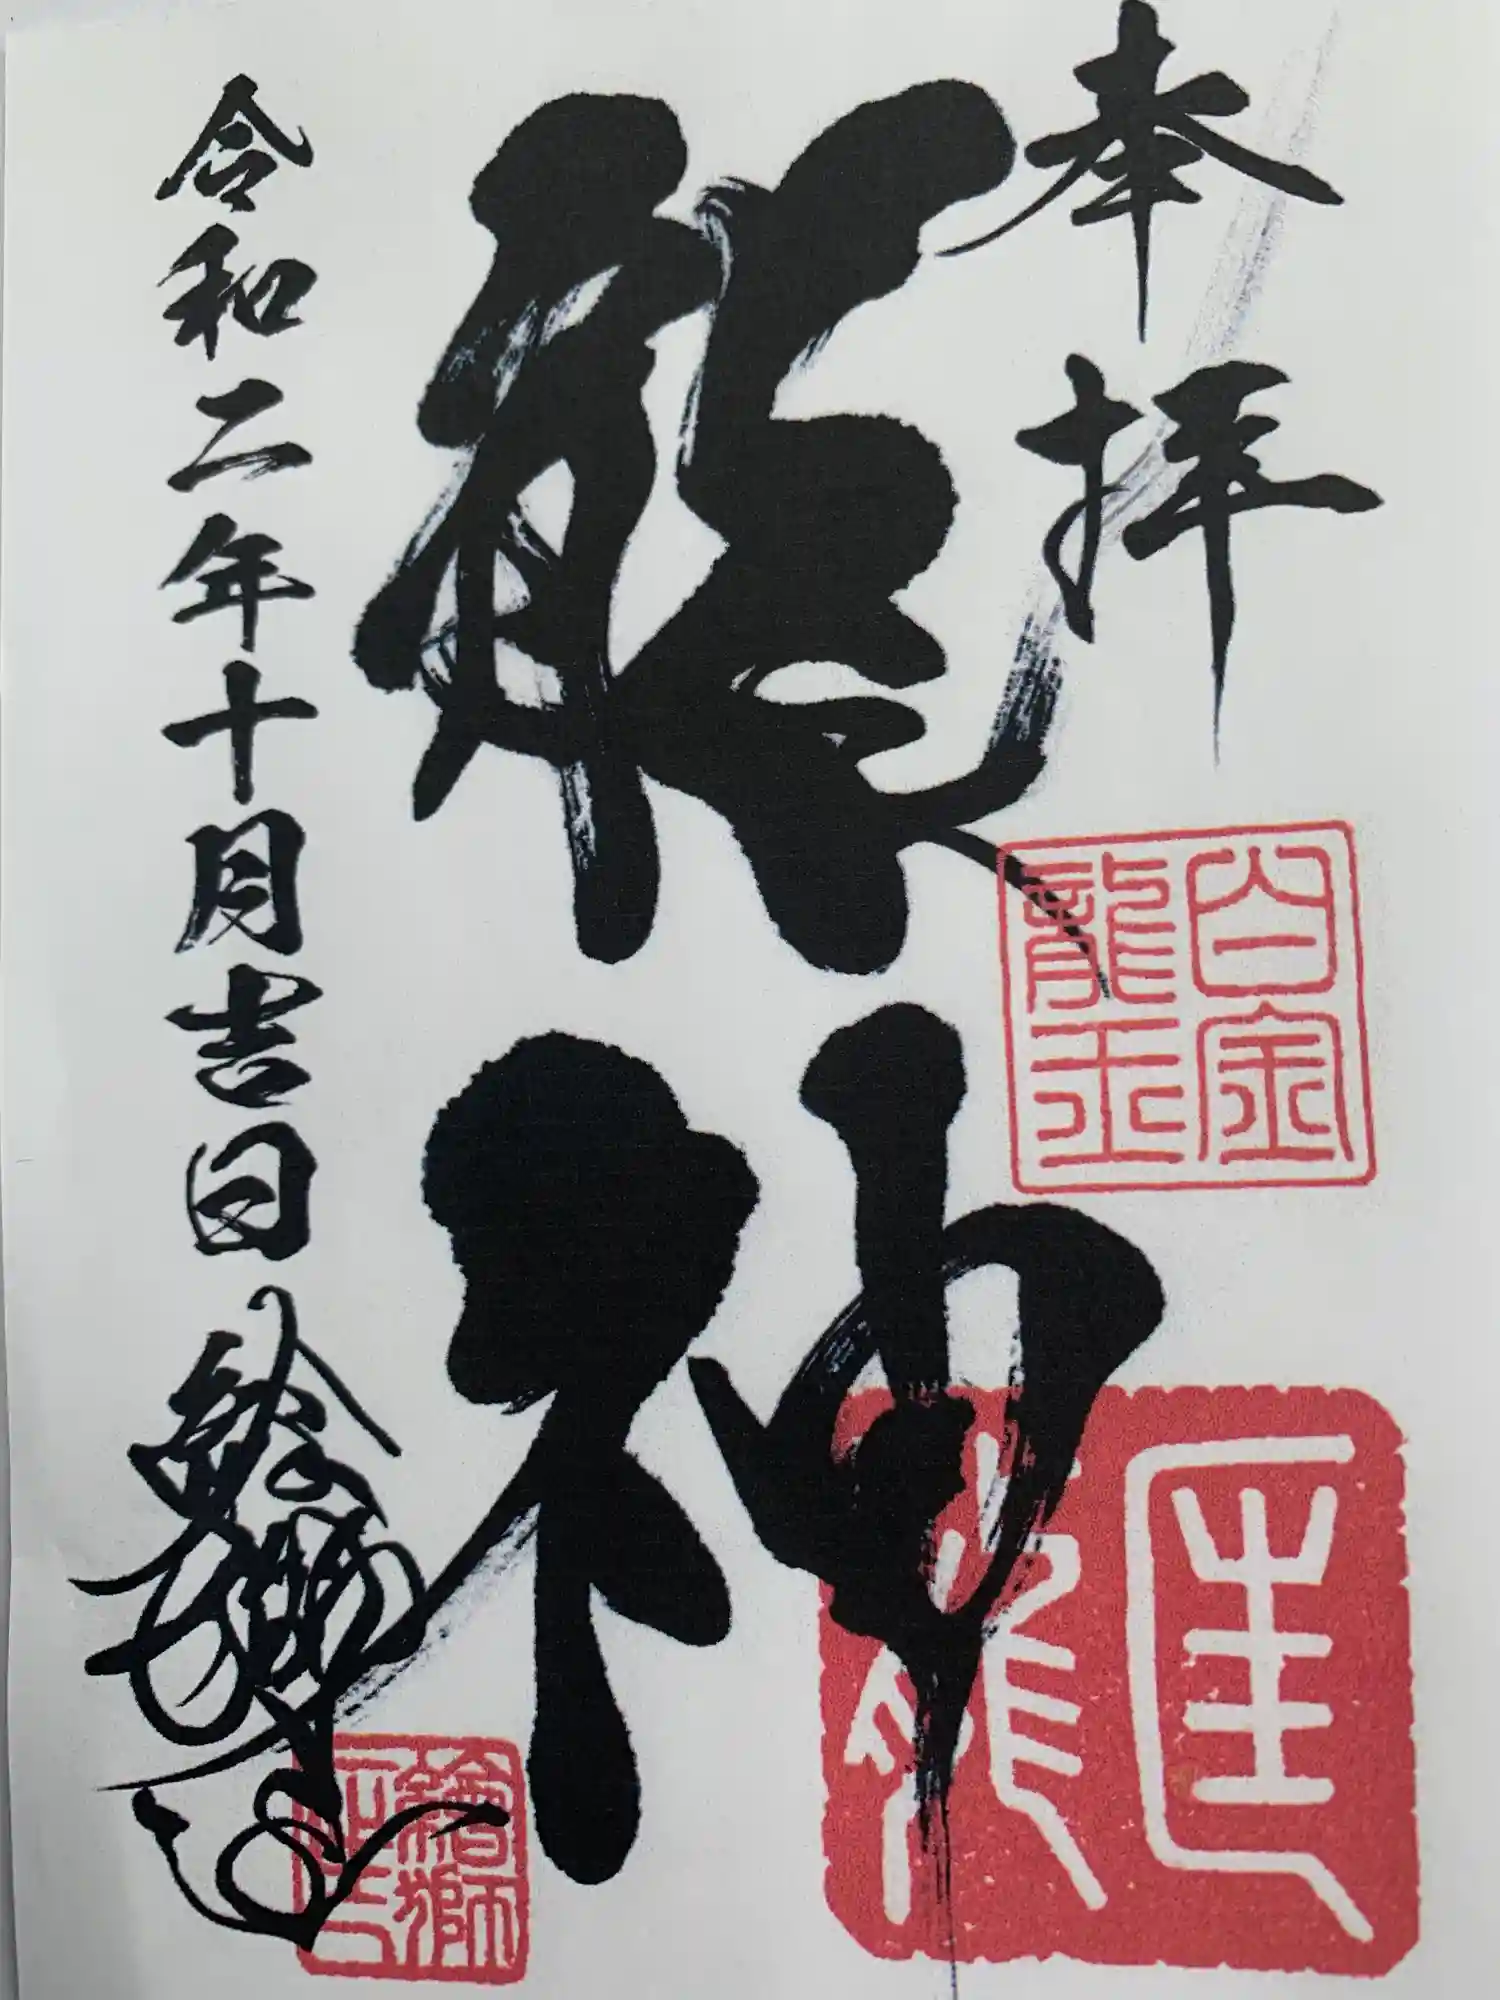 奉拝
龍神
白金
龍王
令和二年十月吉日
繪獅